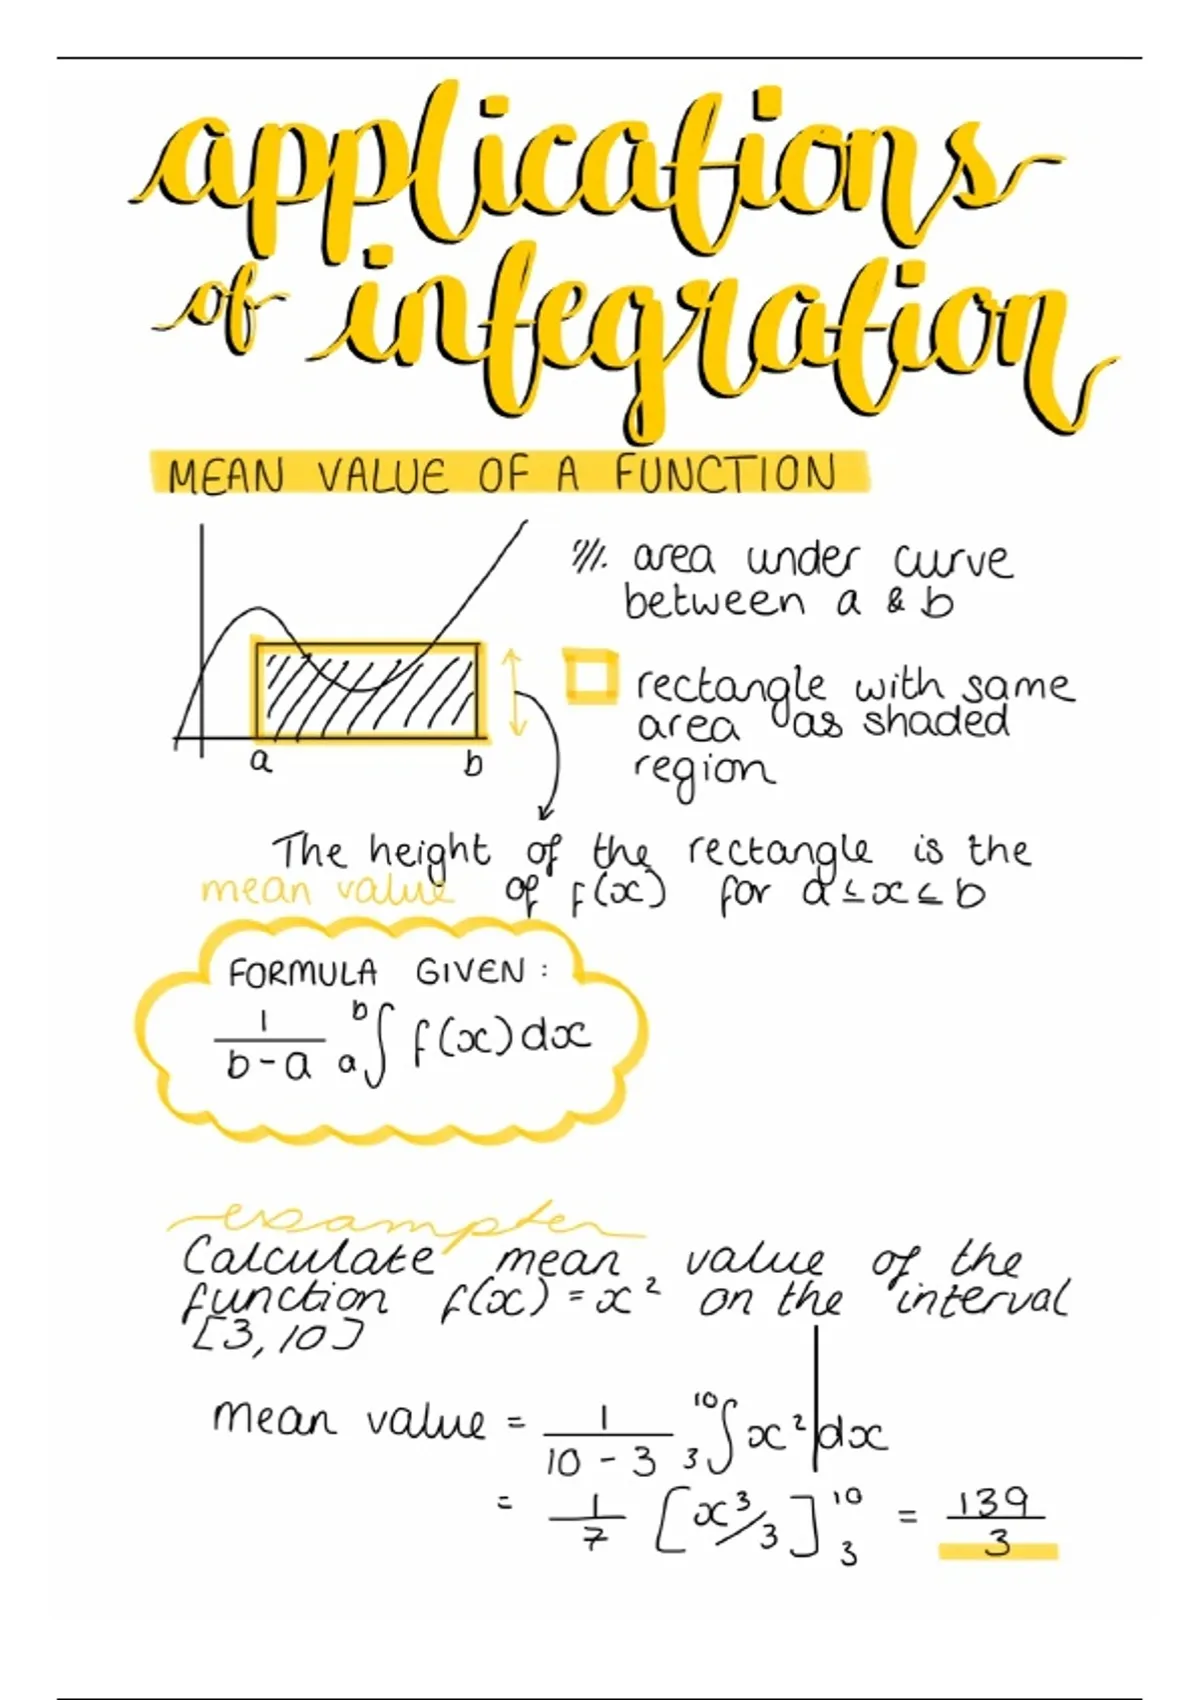 applications
of integration
MEAN VALUE OF A FUNCTION
area under curve
between a & b
rectangle with same
area as shaded
region
a b
The height of the rectangle is the
mean value of f(x) for a ≤ x ≤ b
FORMULA GIVEN :
1/(b-a) a∫b f(x)dx
example
Calculate mean value of the
function f(x) = x² on the interval
[3, 10]
mean value = 1/(10 - 3) 3∫10 x² dx
= 1/7 [x³/3]10 3 = 139/3